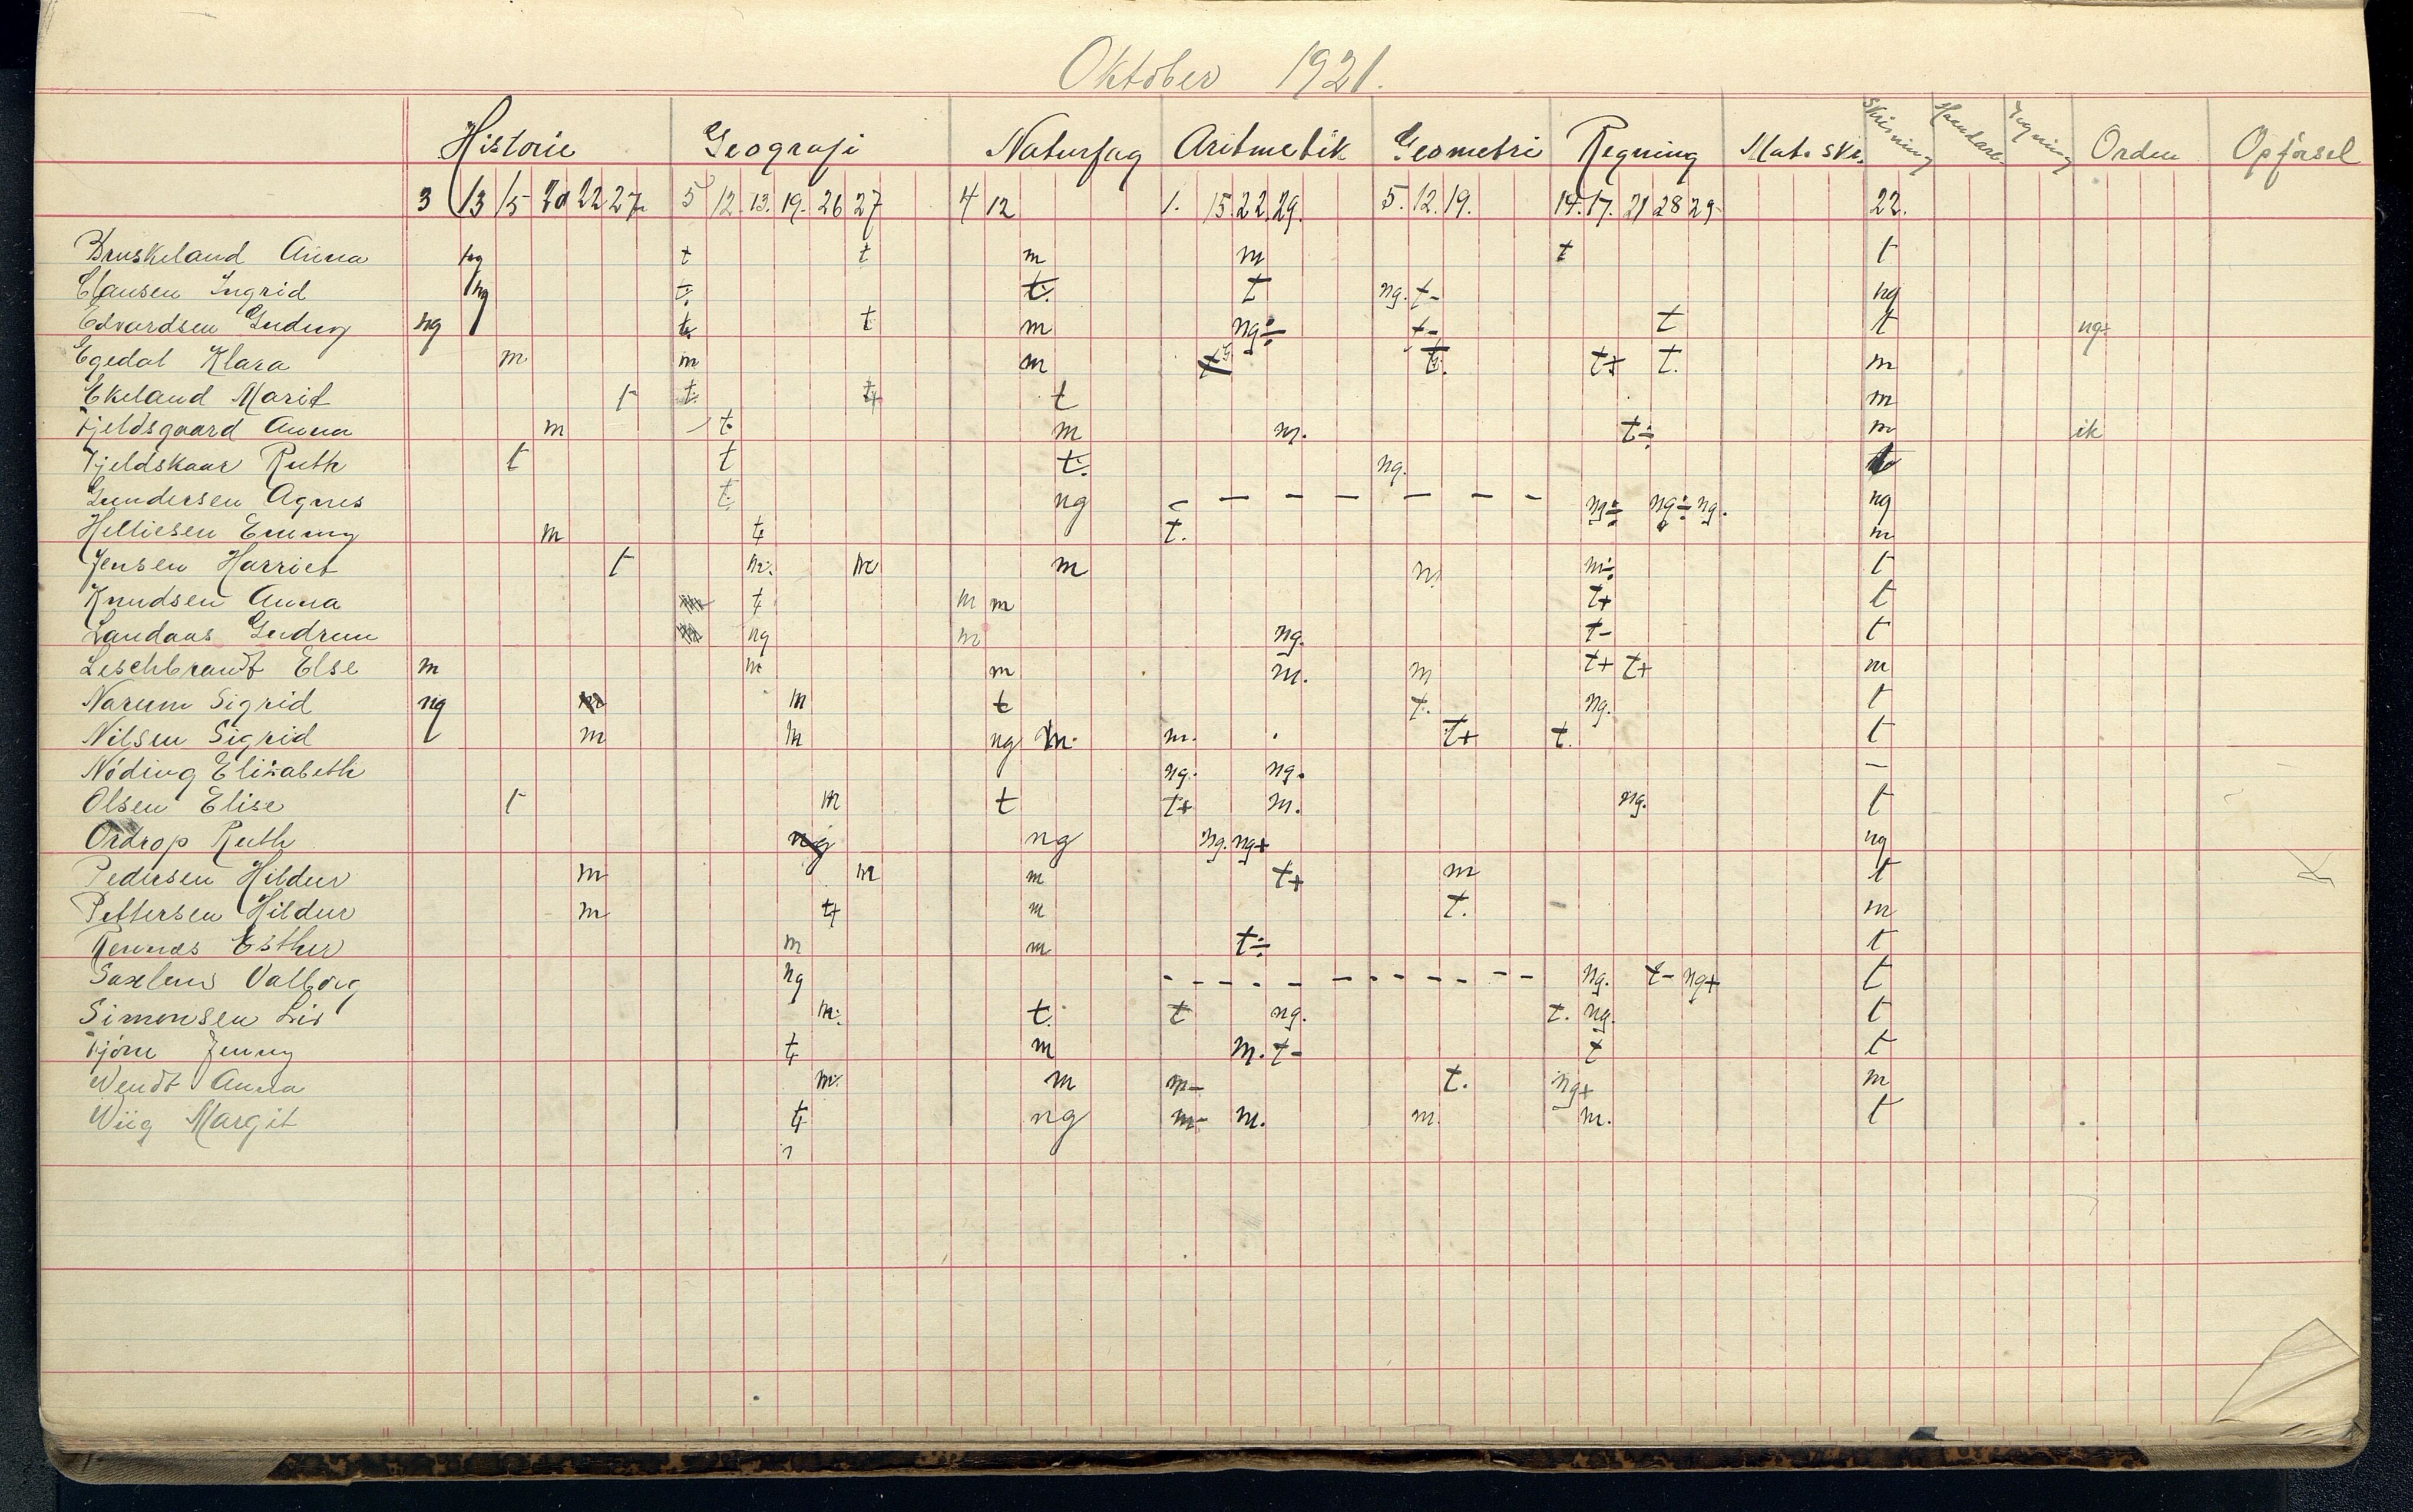 Oktober 1921.
Historie Geografi Naturfag Aritmetik Geometri Regning Mat. skr. Skrivning Haandarb. Tegning Orden Opførsel
3 13 15 20 22 27 5 12. 13. 19. 26 27 4 12 1. 15. 22. 29. 5. 12. 19. 14. 17. 21 28 29 22.
Bruskeland Anna ng t t m m t t
Clausen Ingrid ng t. t. t ng. t- ng
Edvardsen ng t t m ng÷ t- t t ng+
Egedal Klara m m m t. t+ t. m
Ekeland Marit t t. t+ t m
Fjeldsgaard Anna m t m m. t÷ m ik
Fjeldskaar Ruth t t t. ng. t
Gundersen Agnes t. ng - - - - - - - ng÷ ng÷ ng. ng
Helliesen Emmy m t t. m
Jensen Harriet t m. m m m m÷ t
Knudsen Anna m t m m t+ t
Landaas Gudrun m ng m ng. t- t
Leschbrandt Else m m m m. m t+ t+ m
Narum Sigrid ng m m t t. ng. t
Nilsen Sigrid m m ng m. m. t+ t. t
Nöding Elisabeth ng. ng. —
Olsen Elise t m t t+ m. ng. t
Ordrop Ruth ng ng ng. ng+ ng
Pedersen Hildur m m m t+ m t
Pettersen Hildur m t+ m t. m
Esther m m t÷ t
Valborg ng - - - - - - - - - - - - ng. t- ng+ t
Simonsen Lis m. t. t ng. t. ng. t
Tjöm Jenny t m m. t- t t
Wendt Anna m. m m- t. ng+ m
Wiig Margit t ng m- m. m. m. t